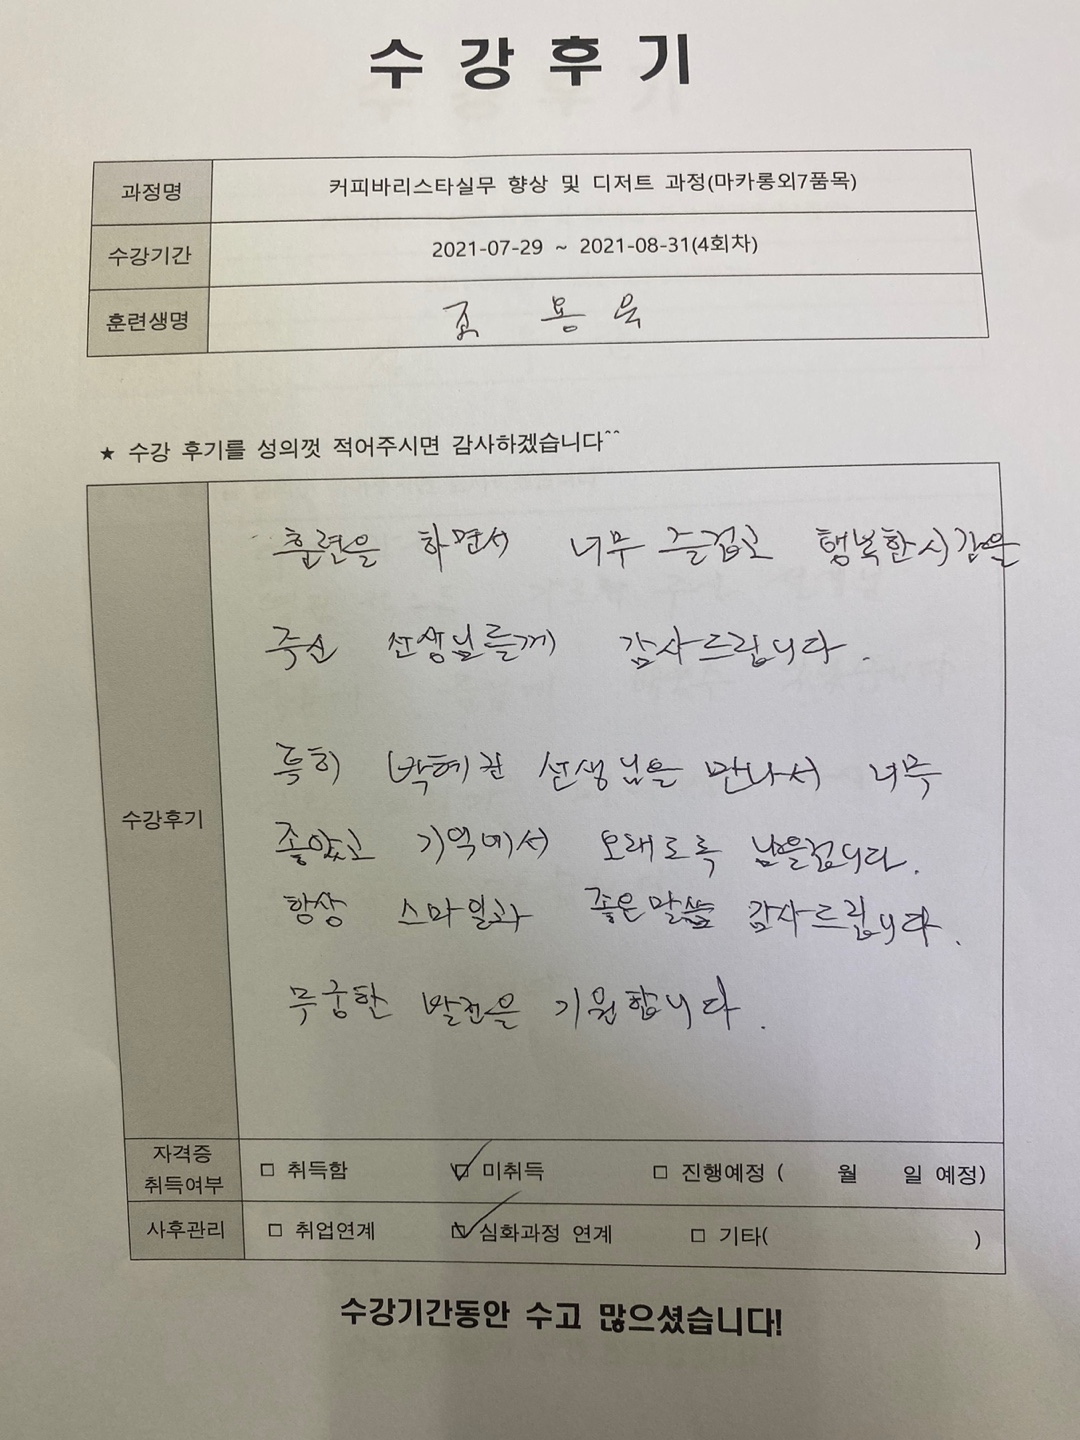 수 강 후 기
과정명 커피바리스타실무 향상 및 디저트 과정(마카롱외7품목)
수강기간 2021-07-29 ~ 2021-08-31(4회차)
훈련생명 조 용 욱
★ 수강 후기를 성의껏 적어주시면 감사하겠습니다^^
수강후기
훈련을 하면서 너무 즐겁고 행복한시간을
주신 선생님들께 감사드립니다.
특히 박혜권 선생님을 만나서 너무
좋았고 기억에서 오래도록 남을겁니다.
항상 스마일과 좋은말씀 감사드립니다.
무궁한 발전을 기원합니다.
자격증 취득여부 □ 취득함 ☑ 미취득 □ 진행예정 ( 월 일 예정)
사후관리 □ 취업연계 ☑ 심화과정 연계 □ 기타( )
수강기간동안 수고 많으셨습니다!